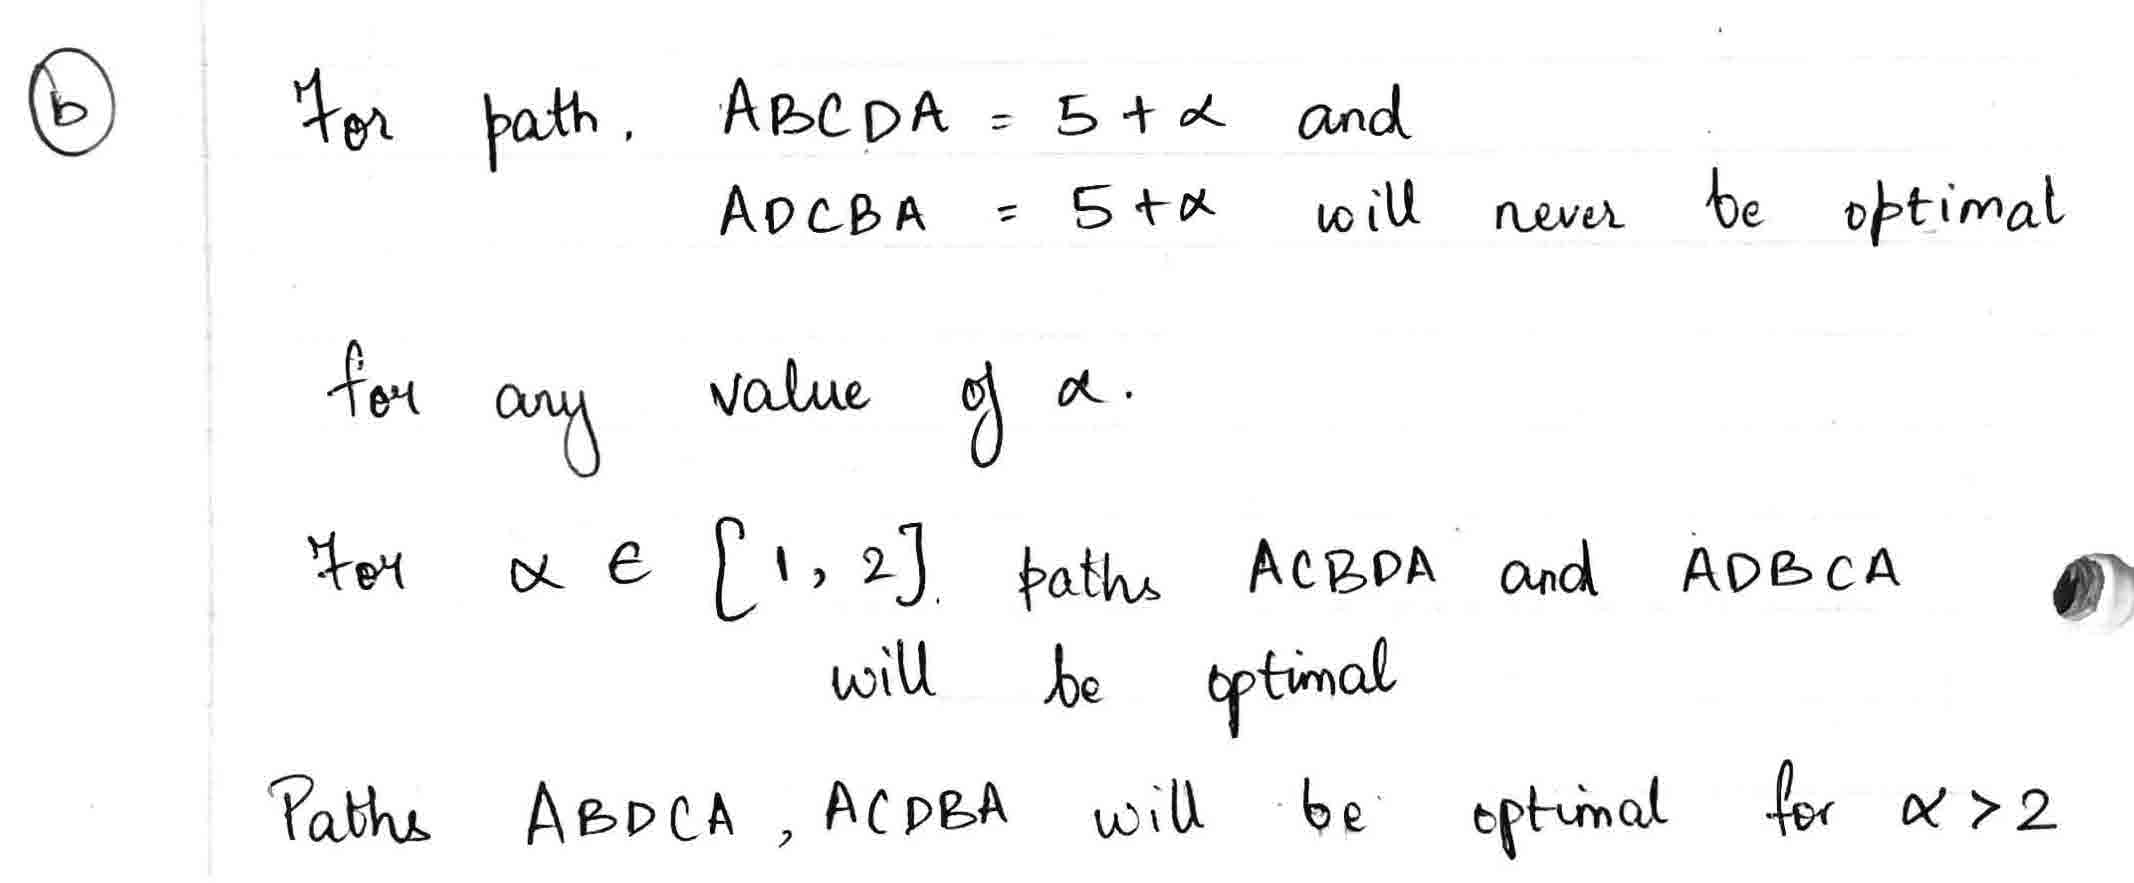 b For path, ABCDA = 5 + α and
ADCBA = 5 + α will never be optimal
for any value of α.
For α ∈ [1, 2]. paths ACBDA and ADBCA
will be optimal
Paths ABDCA, ACDBA will be optimal for α > 2